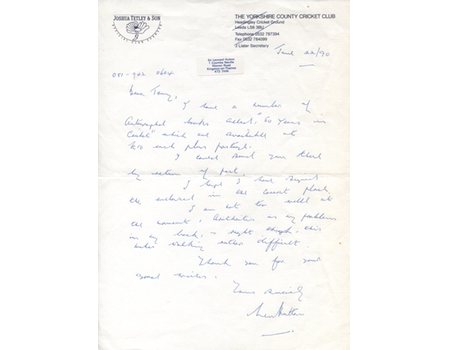 JOSHUA TETLEY & SON
THE YORKSHIRE COUNTY CRICKET CLUB
Headingley Cricket Ground
Leeds LS6 3BU
Telephone 0532 787394
Fax 0532 784099
J Lister Secretary
June 22/90
Sir Leonard Hutton
Kingston-on-Thames
081-942 0604
Dear
I have a number of
Autographed books called "50 Years in
Cricket" which are available at
£10 each plus postage.
I could send you these
by return of post.
I hope I have signed
the enclosed in the correct place,
I am not too well at
the moment, Arthritis is my problem
in my back, & right thigh, this
makes walking rather difficult
Thank you for your
good wishes.
Yours sincerely
Len Hutton